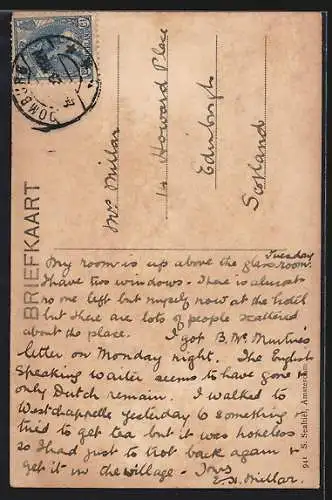 DOMBURG
BRIEFKAART
Mrs Millar
14 Howard Place
Edinburgh
Scotland
Tuesday
My room is up above the glass room.
I have two windows. There is almost
no one left but myself now at the hotel
but there are lots of people scattered
about the place. I got B. McMurtrie's
letter on Monday night. The English
speaking waiter seems to have gone &
only Dutch remain. I walked to
Westchappelle yesterday & something
tried to get tea but it was hopeless
so I had just to trot back again &
get it in the village. Yours
E. H. Millar.
941 S. Sealtiel, Amsterdam